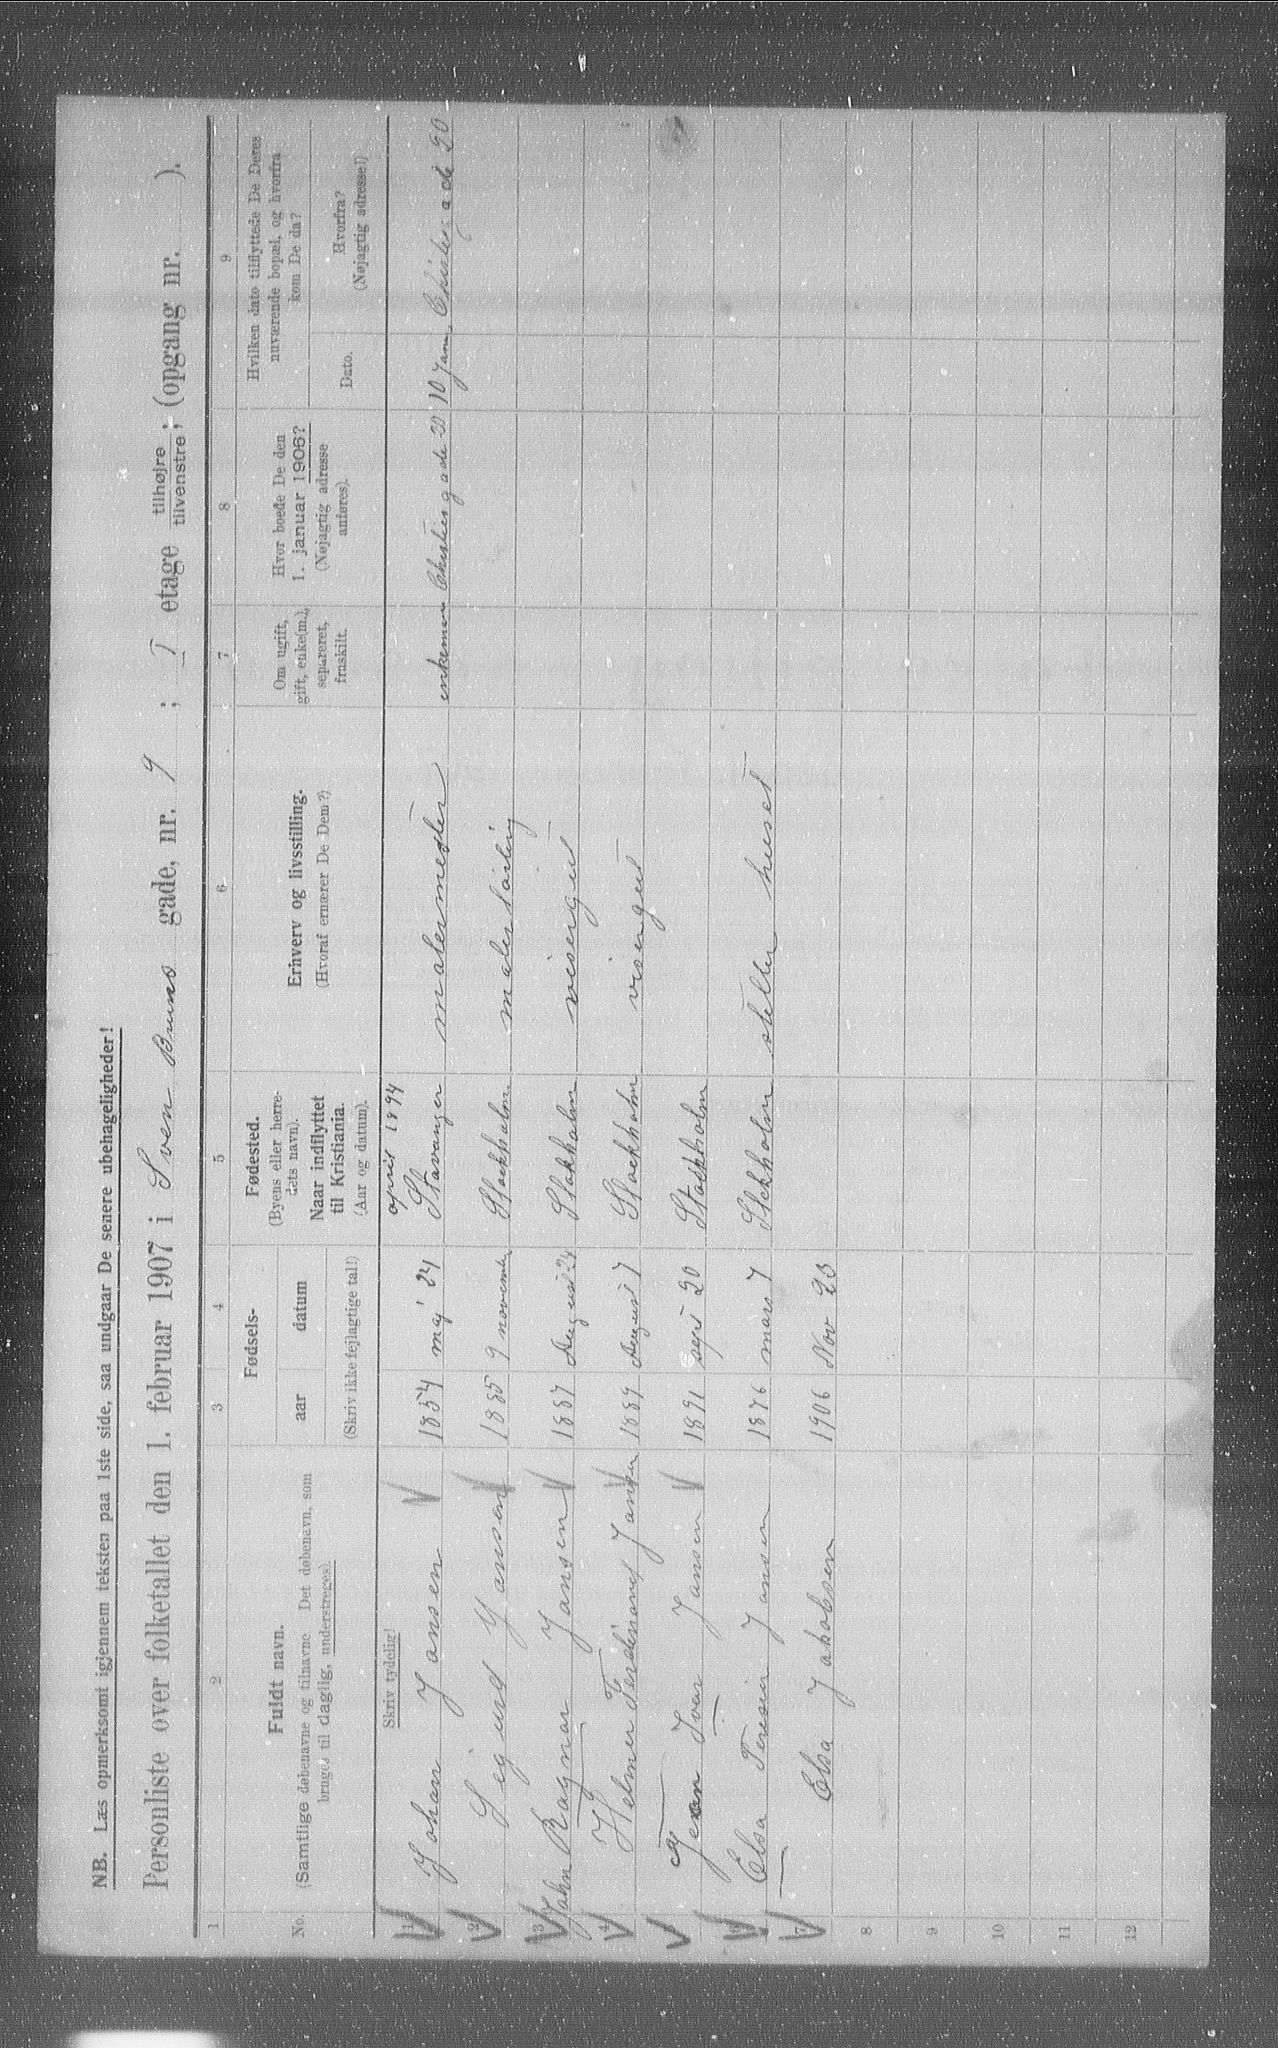 NB. Læs opmerksomt igjennem teksten paa 1ste side, saa undgaar De senere ubehageligheder!
Personliste over folketallet den 1. februar 1907 i Sven Bruns gade, nr. 9 ; I etage tilhøjre tilvenstre; (opgang nr. ).
1 2 3 4 5 6 7 8 9
No.
Fuldt navn.
(Samtlige døbenavne og tilnavne. Det døbenavn, som
bruges til daglig, understreges).
Fødsels-
aar datum
(Skriv ikke fejlagtige tal!)
Fødested.
(Byens eller herre-
dets navn).
Naar indflyttet
til Kristiania.
(Aar og datum).
Erhverv og livsstilling.
(Hvoraf ernærer De Dem?)
Om ugift,
gift, enke(m.),
separeret,
fraskilt.
Hvor boede De den
1. januar 1906?
(Nøjagtig adresse
anføres).
Hvilken dato tilflyttede De Deres
nuværende bopæl, og hvorfra
kom De da?
Dato.
Hvorfra?
(Nøjagtig adresse!)
Skriv tydelig!
april 1894
1 Johan Jansen 1854 maj 24 Stavanger malermester enkeman Christies gade 20 10 Janu Christies gade 20
2 Sigurd Jansen 1885 9 november Stockholm malerlærling
3 John Ragnar Jansen 1887 August 24 Stokholm visergut
4 Helmer Ferdinand Jansen 1889 August 7 Stockholm visergut
Ivar Jansen 1891 sept 20 Stockholm
6 Elsa Jansen 1876 mars 7 Stokholm steller huset
7 Elsa Jakobsen 1906 Nov 23
8
9
10
11
12